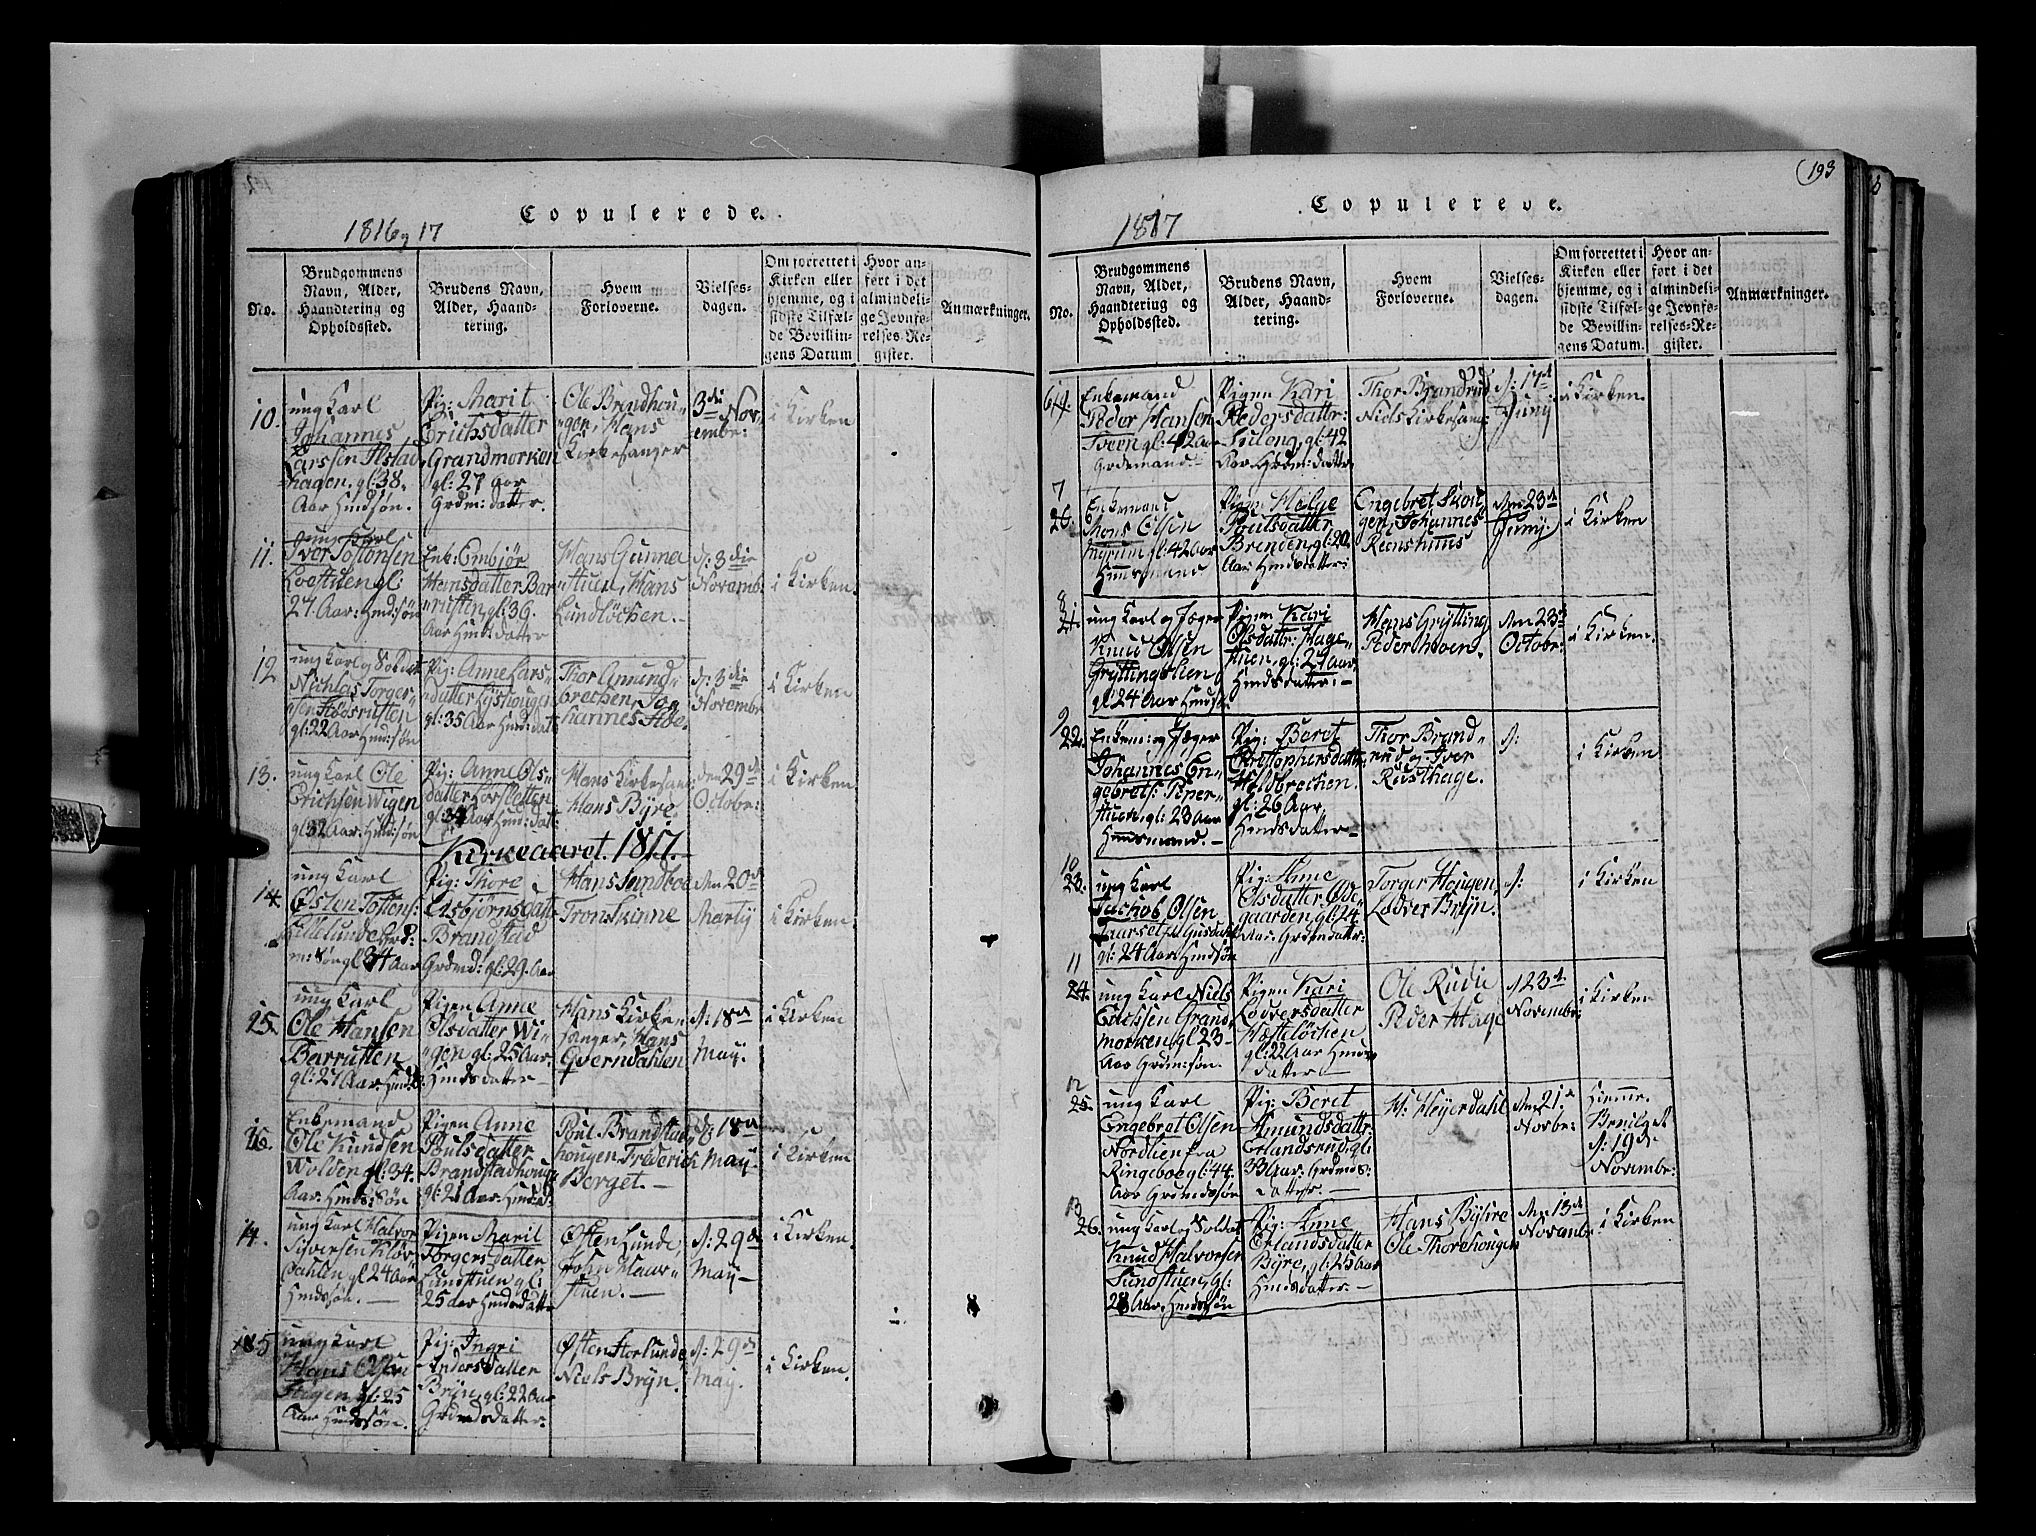 Copulerede.
1816 og 17
No.
Brudgommens
Navn, Alder,
Haandtering og
Opholdssted.
Brudens Navn,
Alder, Haand-
tering.
Hvem
Forloverne.
Vielses-
dagen.
Om forrettet i
Kirken eller
hjemme, og i
sidste Tilfæl-
de Bevillin-
gens Datum
Hvor an-
ført i det
almindeli-
ge Jevnfø-
relses-Re-
gister.
Anmærkninger.
10.
ung Karl
Johannes
Larssen
hagen, gl: 38
Aar Hmdsøn.
Pig: Marit
Erichsdatter
Grandmorken
gl: 27 aar
Grdm: datter.
Ole Brendhou-
gen, Hans
Kirkesanger
3die Nov-
embr:
i Kirken
11.
ung Karl
Iver Tostensen
Loestuen gl:
27. Aar. Hmd: søn
Enk: Embjør
Hansdatter Bar-
rusten, gl: 36.
Aar Hmd: datter
Hans Gunna
stuen, Hans
Lundløchen.
d: 3die
Novemb:
i Kirken.
12
ung Karl og Soldat
Nichlas Torger-
sen
gl: 22 Aar Hmd: søn
Pig: Anne Lars-
datter Lyshougen
gl: 35 Aar Hmd: datt:
Thor Amund-
brechen, Jo-
hannes
d: 3die
Novembr
i Kirken
13.
ung Karl Ole
Erichsen Wigen
gl: 32 Aar. Hmd: søn
Pig: Anne Ols-
datter Forsletten
gl: 34 Aar Hmd: datt:
Hans Kirkesang
Hans Byre.
den 29de
Octobr:
i Kirken
Kirkeaaret. 1817.
14.
ung Karl
Østen Tostens:
m: Søn gl 34 Aar
Pig: Thore
Esbjørnsdatter
Brandstad
Grdmd: gl: 29. Aar
Hans Sundboe
Tron Skinne
den 20de
Martij
i Kirken.
15.
ung Karl
Ole Hansen
Barrusten
gl: 27 Aar. Hmds:
Pigen Anne
Olsdatter Wi-
gen gl: 25 Aar.
Hmdsdatter
Hans Kirke-
sanger, Hans
Qverndahlen
d: 18de
May.
i Kirken
16.
Enkemand
Ole Knudsen
Wolden gl. 34.
Aar. Hmds: Søn
Pigen Anne
Poulsdatter
Brandstadhoug:
gl: 21 Aar. Hmdsd:
Poul Brandstad-
hougen, Frederick
Berget.
d: 18de
May.
i Kirken
14.
ung Karl Halvor
Siversen Kløv-
dahlen gl 24 Aar
Hmdssøn.
Pigen Marit
Torgersdatter
Lundstuen gl:
25 aar Hmdsdatter
Østen Lunde,
John Maur-
stuen.
d: 29de
May
i Kirken.
15
ung Karl
Hans Olsen
Hagen gl: 25
Aar Hmdssøn.
Pig: Ingri
Andersdatter
Bryn, gl: 22 Aar
Grdmdsdatter:
Østen Horlunde
Niels Bryn.
d: 29de
May.
i Kirken.
193
Copulerede.
1817
No.
Brudgommens
Navn, Alder,
Haandtering og
Opholdssted.
Brudens Navn,
Alder, Haand-
tering.
Hvem
Forloverne.
Vielses-
dagen.
Om forrettet i
Kirken eller
hjemme, og i
sidste Tilfæl-
de Bevillin-
gens Datum.
Hvor an-
ført i det
almindeli-
ge Jevnfø-
relses-Re-
gister.
Anmærkninger.
Enkemand
Peder Hansen
Tveen gl: 42 Aar
Grdemand.
Pigen Kari
Pedersdattr:
gl: 42
Aar. Grdm: datter
Thor Brandrud
Niels Kirkesang:
d: 17de
Junij
i Kirken.
7
20.
Enkemand
Mons Olsen
Myrum gl: 42 Aar
Huusmand
Pigen Helge
Poulsdatter
Brenden, gl: 20
Aar. Hmdsdatter:
Engebret
gen, Johannes
den 23de
Junij.
i Kirken
8
21.
ung Karl og Jæger
Knud Olsen
Gryttingslien
gl: 24 Aar Hmdsøn
Pigen Kari
Olsdattr: Hage-
stuen, gl: 27 Aar
Hmdsdatter:
Hans Grytting
Peder Hoven.
den 23de
Octobr:
i Kirken.
9
22.
Enkem: og Jæger
Johannes En-
gebrets:
stuen, gl: 23 Aar
Huusmand.
Pig: Beret
Christophersdatter
gl: 26 Aar
Hmdsdatter
Thor Brand-
rud og Iver
Rusthage.
d:
i Kirken
10
23.
ung Karl
Jachob Olsen
gl: 24 Aar: Hmdsøn
Pig: Anne
Olsdatter Øde-
gaarden, gl: 24
Aar. Grdmdatter:
Torger Hougen,
Lodver Bryn.
d:
i Kirken
11
24.
ung Karl Niels
Erichsen Grand-
morken, gl 23
Aar Grdm: søn.
Pigen Kari
Lodversdatter
Hesteløchen
gl: 22 Aar Hmds
datter
Ole Rudi
Peder Hage
d 23de
Novembr:
i Kirken
12
25.
ung Karl
Engebret Olsen
Nordlien fra
Ringeboe gl: 44.
Aar Grdmdsøn
Pig: Beret
Amundsdattr:
Erlandsrud, gl:
33 Aar: Grdmds:
datter.
H: Heyerdahl
den 21de
Novbr:
Hiemme.
Bevilget
d: 19de
Novembr:
13
26.
ung Karl og Soldat
Knud Halvorsen
Sundstuen, gl:
28 Aar. Hmdssøn
Pig: Anne
Erlandsdatter
Byre, gl: 25 Aar
Hmdsdatter.
Hans Byre
Ole Thorehougen
den 13de
Novembr
i Kirken